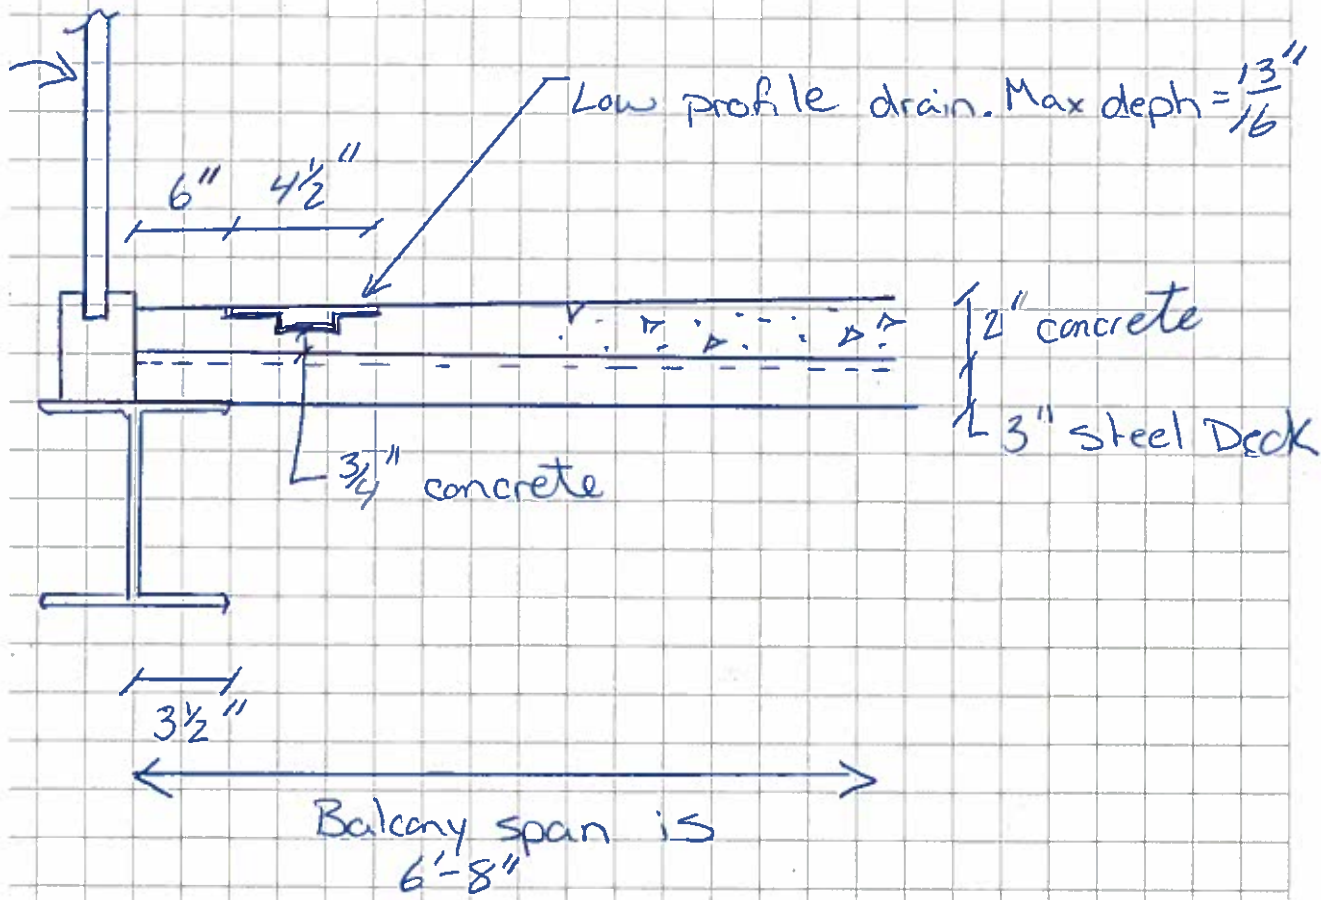 Low profile drain. Max deph = 13/16"
6" 4 1/2"
2" concrete
3" Steel Deck
3/4" concrete
3 1/2"
Balcony span is
6'-8"